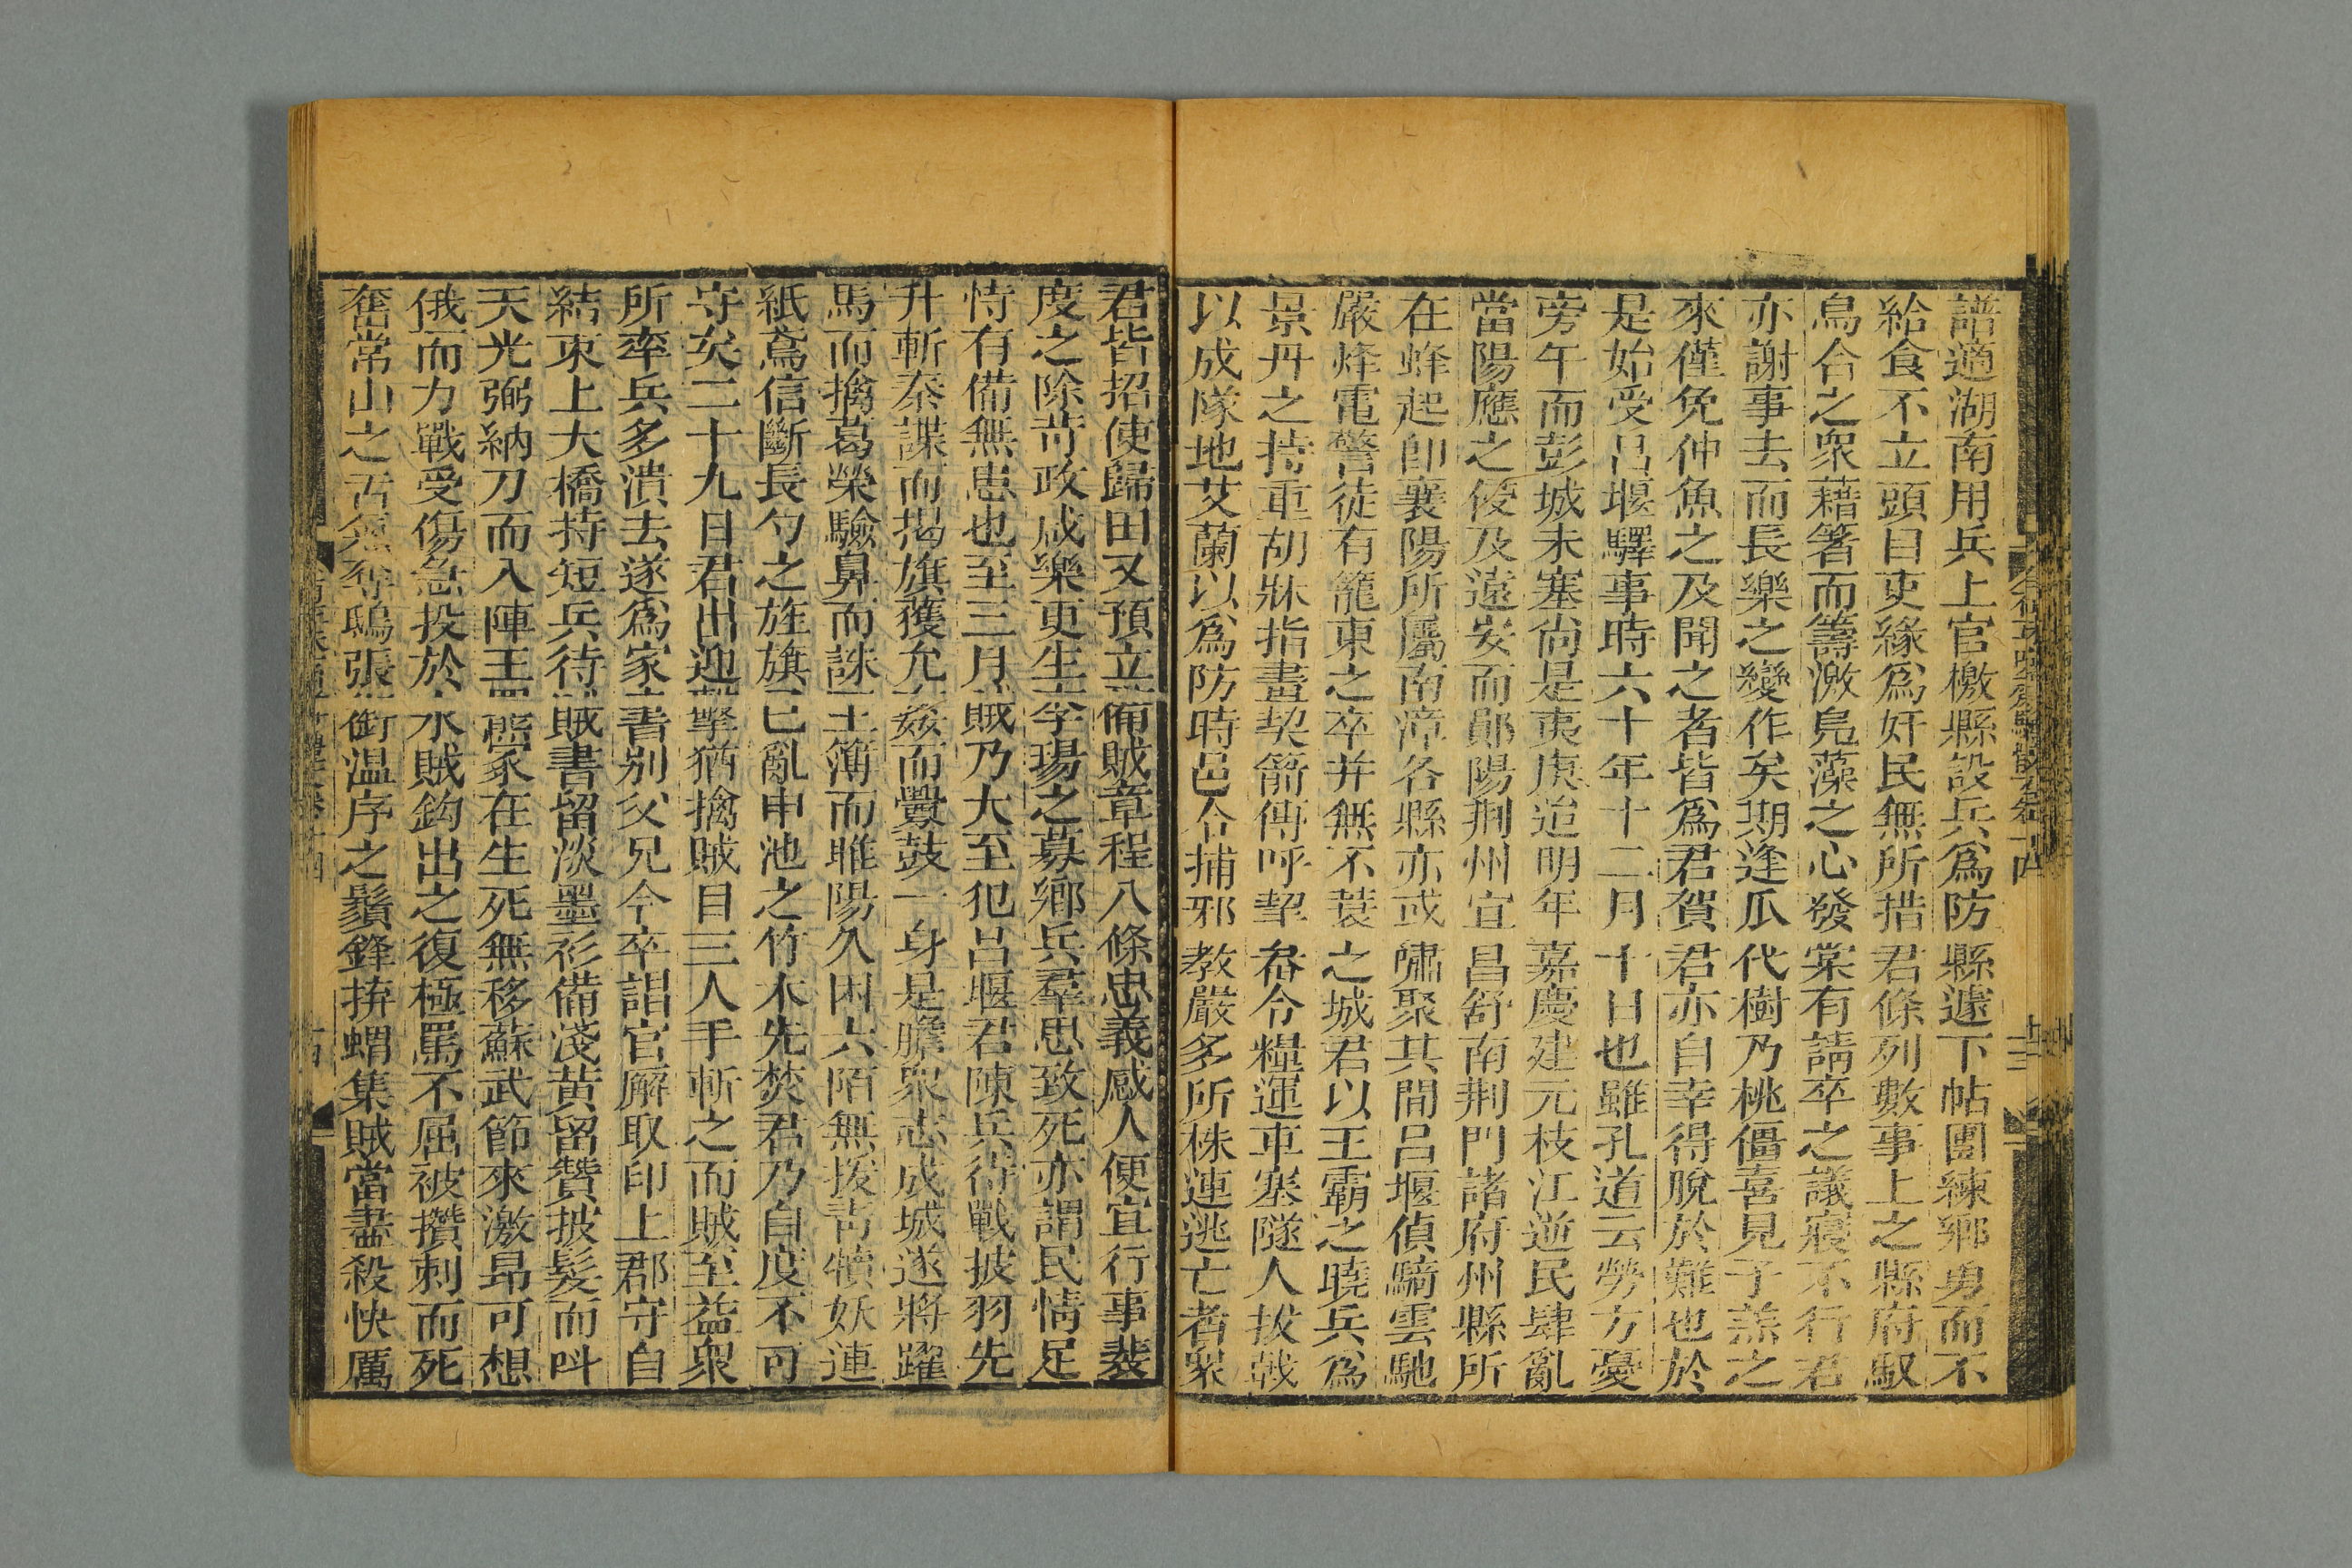 諳適湖南用兵上官檄縣設兵爲防縣遽下帖團練鄉勇而不
給食不立頭目吏緣爲奸民無所措君條列數事上之縣府馭
烏合之衆藉箸而籌激鳧藻之心發棠有請卒之議寢不行君
亦謝事去而長樂之變作矣期逢瓜代樹乃桃僵喜見子羔之
來僅免仲魚之及聞之者皆爲君賀君亦自幸得脫於難也於
是始受呂堰驛事時六十年十二月十日也雖孔道云勞方憂
旁午而彭城未塞尙是夷庚迨明年嘉慶建元枝江逆民肆亂
當陽應之侵及遠安而鄖陽荆州宜昌舒南荆門諸府州縣所
在蜂起卽襄陽所屬南漳各縣亦或嘯聚其間呂堰偵騎雲馳
嚴烽電警徒有籠東之卒并無不蓑之城君以王霸之曉兵爲
景丹之持重胡牀指畫契箭傳呼挈畚令糧運車塞隧人拔戟
以成隊地艾蘭以爲防時邑令捕邪教嚴多所株連逃亡者衆
君皆招使歸田又預立備賊章程八條忠義感人便宜行事裴
度之除苛政咸樂更生李瑒之募鄉兵羣思致死亦謂民情足
恃有備無患也至三月賊乃大至犯呂堰君陳兵待戰披羽先
升斬泰諜而揭旗獲允姦而釁鼓一身是膽衆志成城遂將躍
馬而擒葛榮驗鼻而誅王簿而睢陽久困六陌無援靑犢妖連
紙鳶信斷長勺之旌旗已亂申池之竹木先焚君乃自度不可
守矣二十九日君出迎擊猶擒賊目三人手斬之而賊至益衆
所率兵多潰去遂爲家書別父兄令卒詣官廨取印上郡守自
結束上大橋持短兵待賊書留淡墨衫備淺黃留贊披髮而呌
天光弼納刀而入陣王罷冢在生死無移蘇武節來激昂可想
俄而力戰受傷急投於水賊鈎出之復極罵不屈被攢刺而死
奮常山之舌無孥鴟張銜温序之鬚鋒挤蝟集賊當盡殺快厲